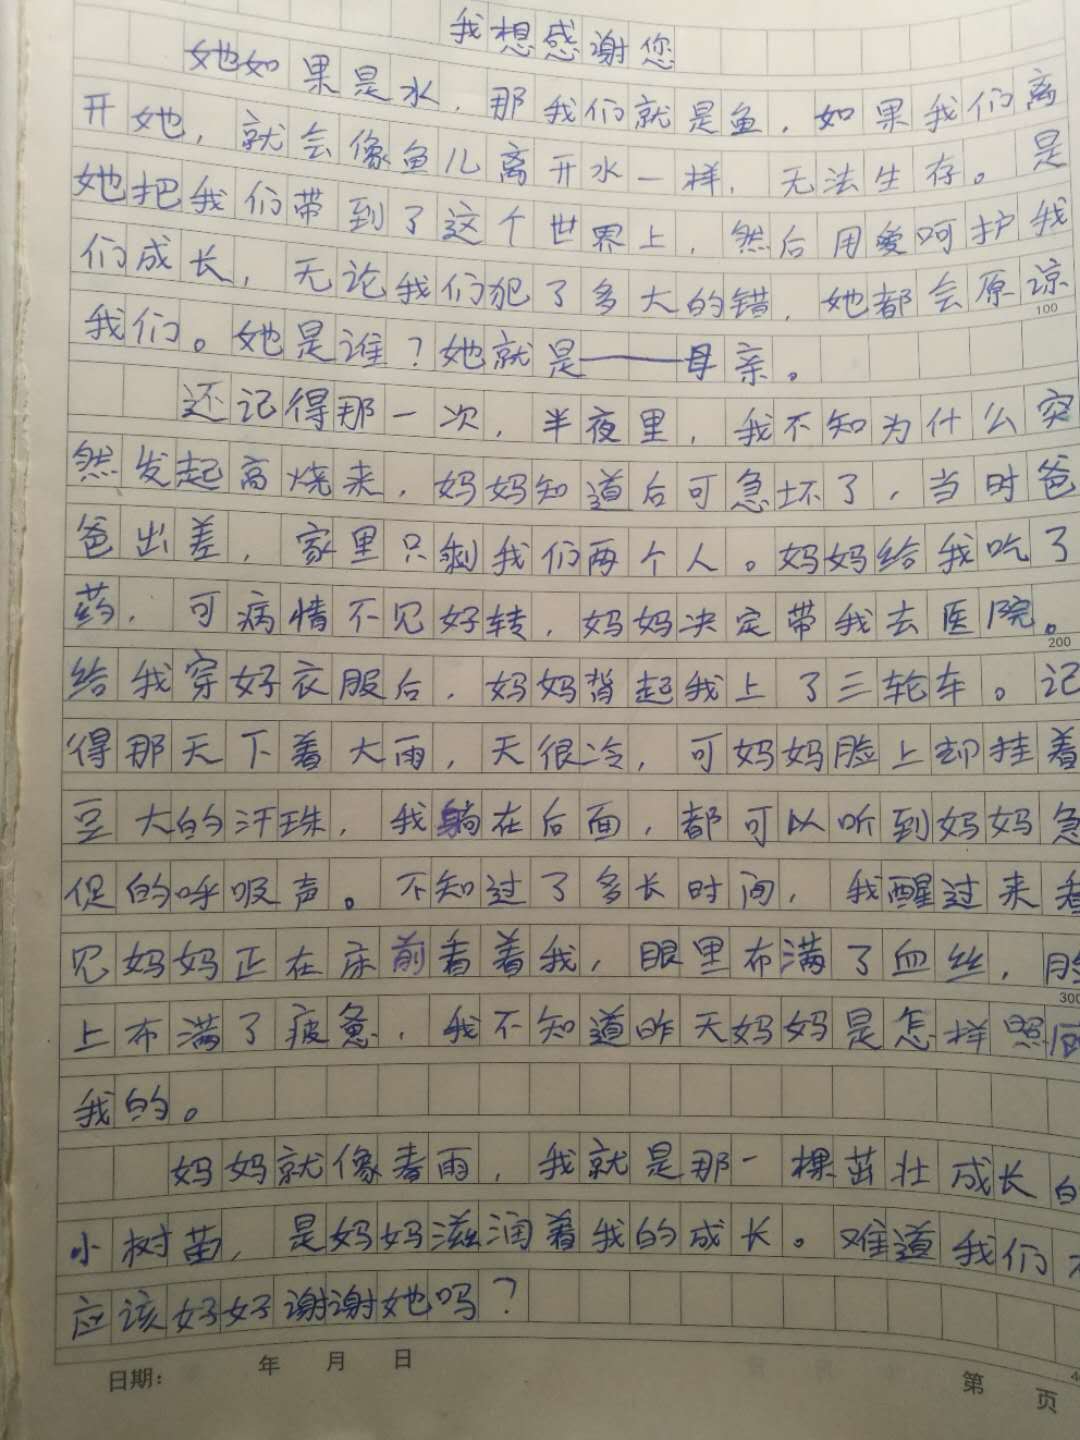 我想感谢您
她如果是水，那我们就是鱼，如果我们离
开她，就会像鱼儿离开水一样，无法生存。是
她把我们带到了这个世界上，然后用爱呵护我
们成长，无论我们犯了多大的错，她都会原谅
100
我们。她是谁？她就是——母亲。
还记得那一次，半夜里，我不知为什么突
然发起高烧来，妈妈知道后可急坏了，当时爸
爸出差，家里只剩我们两个人。妈妈给我吃了
药，可病情不见好转，妈妈决定带我去医院。
200
给我穿好衣服后，妈妈背起我上了三轮车。记
得那天下着大雨，天很冷，可妈妈脸上却挂着
豆大的汗珠，我躺在后面，都可以听到妈妈急
促的呼吸声。不知过了多长时间，我醒过来看
见妈妈正在床前看着我，眼里布满了血丝，脸
300
上布满了疲惫，我不知道昨天妈妈是怎样照顾
我的。
妈妈就像春雨，我就是那一棵茁壮成长的
小树苗，是妈妈滋润着我的成长。难道我们不
应该好好谢谢她吗？
日期： 年 月 日
第 页